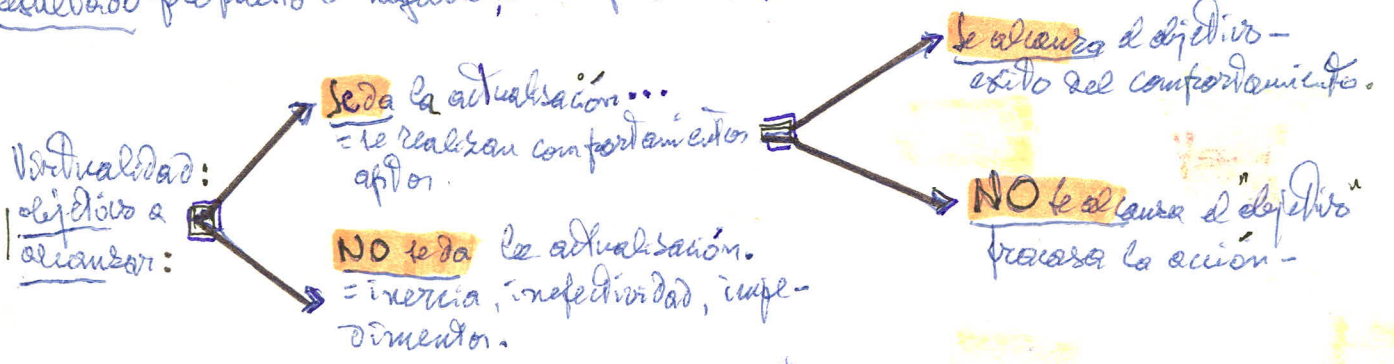 resultado propuesto o sugerido,
Virtualidad:
objetivo a
alcanzar:
Se da la actualización...
= se realizan comportamientos
aptos.
NO se da la actualización.
= inercia, inefectividad, impe-
dimentos.
Se alcanza el objetivo -
exito del comportamiento.
NO se alcanza el "objetivo"
fracasa la acción -